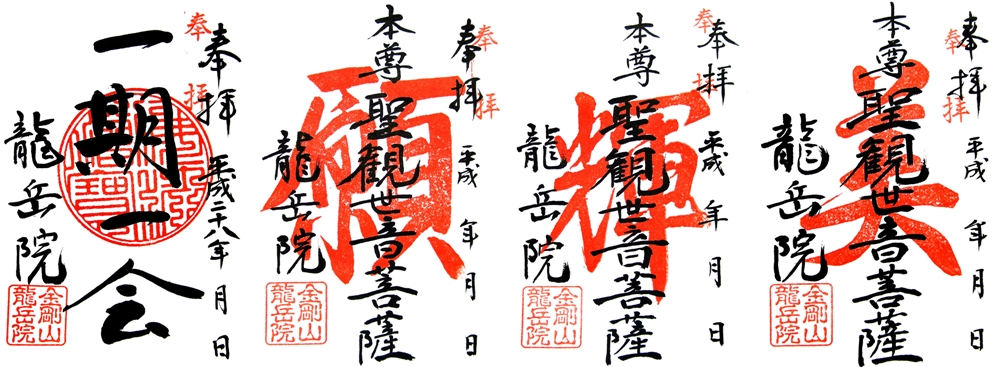 奉拝
奉拝 平成二十八年 月 日
一期一会
龍岳院
金剛山
龍岳院
奉拝
奉拝 平成 年 月 日
願
本尊 聖観世音菩薩
龍岳院
金剛山
龍岳院
奉拝
奉拝 平成 年 月 日
輝
本尊 聖観世音菩薩
龍岳院
金剛山
龍岳院
奉拝
奉拝 平成 年 月 日
美
本尊 聖観世音菩薩
龍岳院
金剛山
龍岳院